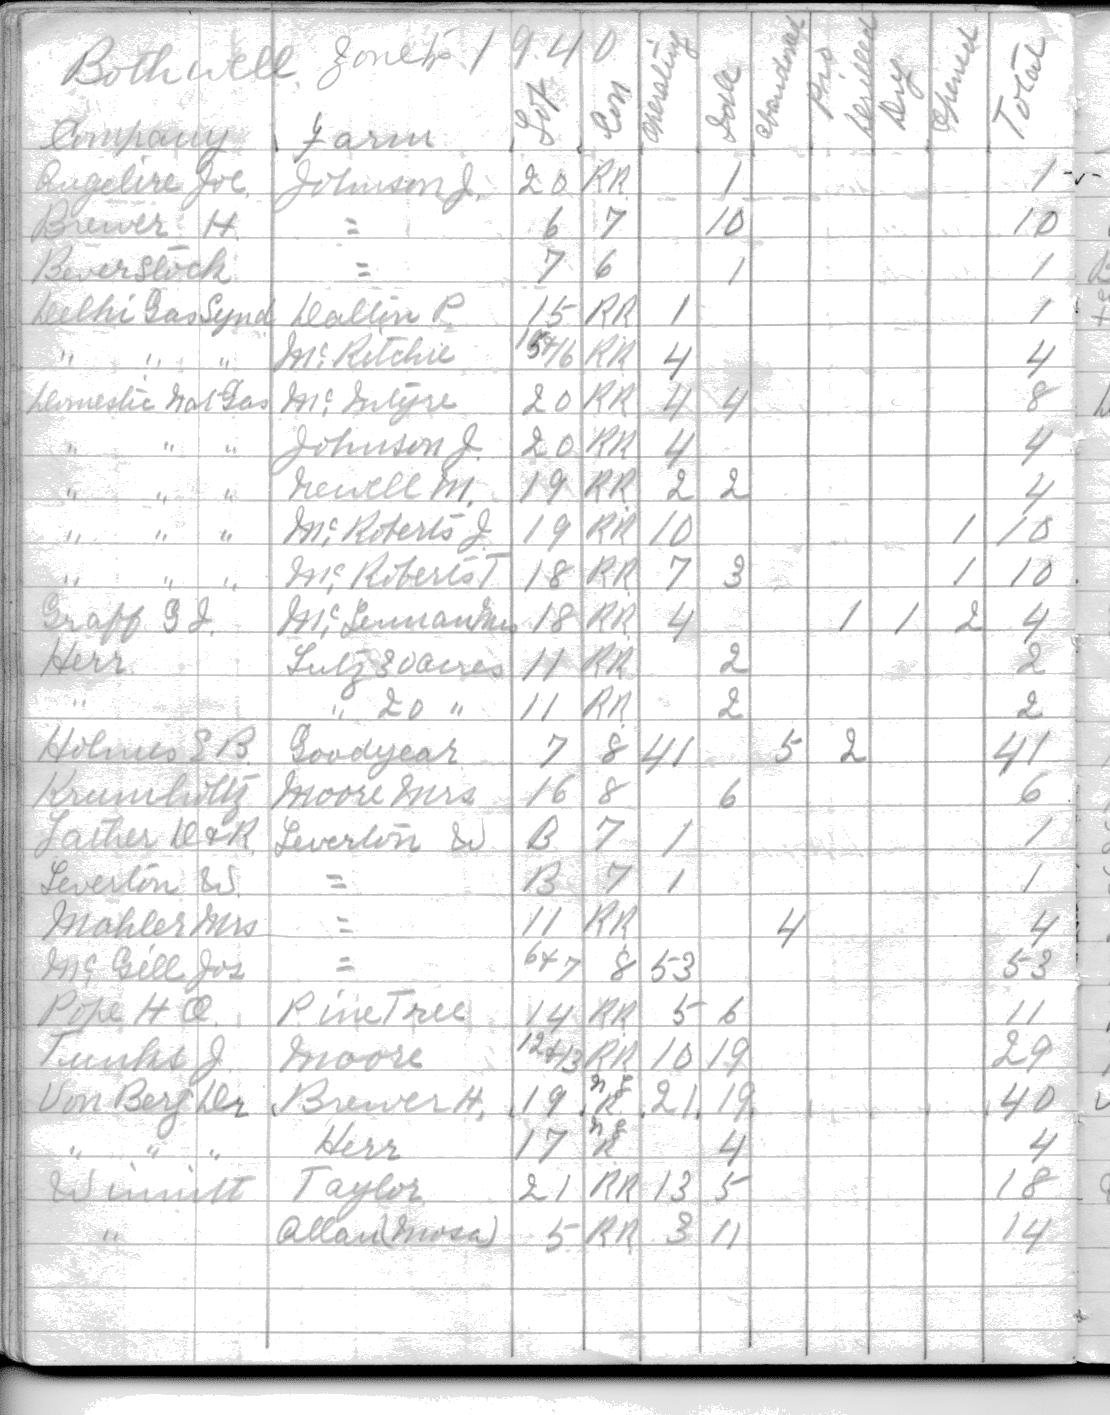 Bothwell, 1940
Company Farm Lot Con Operating Idle Abandoned Pro Drilled Dry Opened Total
Angelire Joe. Johnson J. 20 RR 1 1
Brewer H. = 6 7 10 10
Beverstock = 7 6 1 1
Delhi Gas Synd Dallin P. 15 RR 1 1
" " " Mc Ritchie 15+16 RR 4 4
Domestic Nat Gas Mc Intyre 20 RR 4 4 8
" " " Johnson J. 20 RR 4 4
" " " Newell M. 19 RR 2 2 4
" " " Mc Roberts J. 19 RR 10 1 10
" " " Mc Roberts T 18 RR 7 3 1 10
Graff G J. Mc Lennan Mrs 18 RR 4 1 1 2 4
Herr. Lutz 80 acres 11 RR 2 2
" " 20 " 11 RR 2 2
Holmes E B. Goodyear 7 8 41 5 2 41
Krumholtz Moore Mrs 16 8 6 6
Lather D & R. Leverton W B 7 1 1
Leverton W. = B 7 1 1
Mahler Mrs = 11 RR 4 4
Mc Gill Jos = 6+7 8 53 53
Pope H O. Pine Tree 14 RR 5 6 11
Tunks J. Moore 12+13 RR 10 19 29
Von Berg Dr Brewer H. 19 R 21 19 40
" " " Herr 17 R 4 4
Taylor 21 RR 13 5 18
" Allan (Mosa) 5 RR 3 11 14